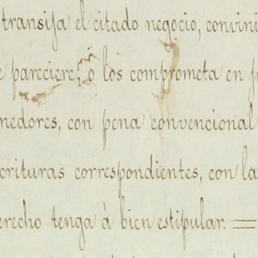 transija el citado negocio, convini
e pareciere; ó los comprometa en j
nedores, con pena convencional
crituras correspondientes, con la
erecho tenga à bien estipular. =